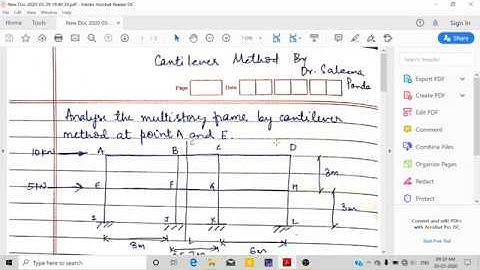 New Doc 2020-03-29 19.44.33.pdf - Adobe Acrobat Reader DC
File Edit View Window Help
Home Tools
Sign In
Cantilever Method By
Dr. Saleema
Panda
Page Date
Analyse the multistory frame by cantilever
method at point A and E.
10KN A B C D
5KN E F H
J L
3m
3m
8m 6m
Export PDF
Create PDF
Edit PDF
Comment
Combine Files
Organize Pages
Redact
Protect
Convert and edit PDFs
with Acrobat Pro DC
Start Free Trial